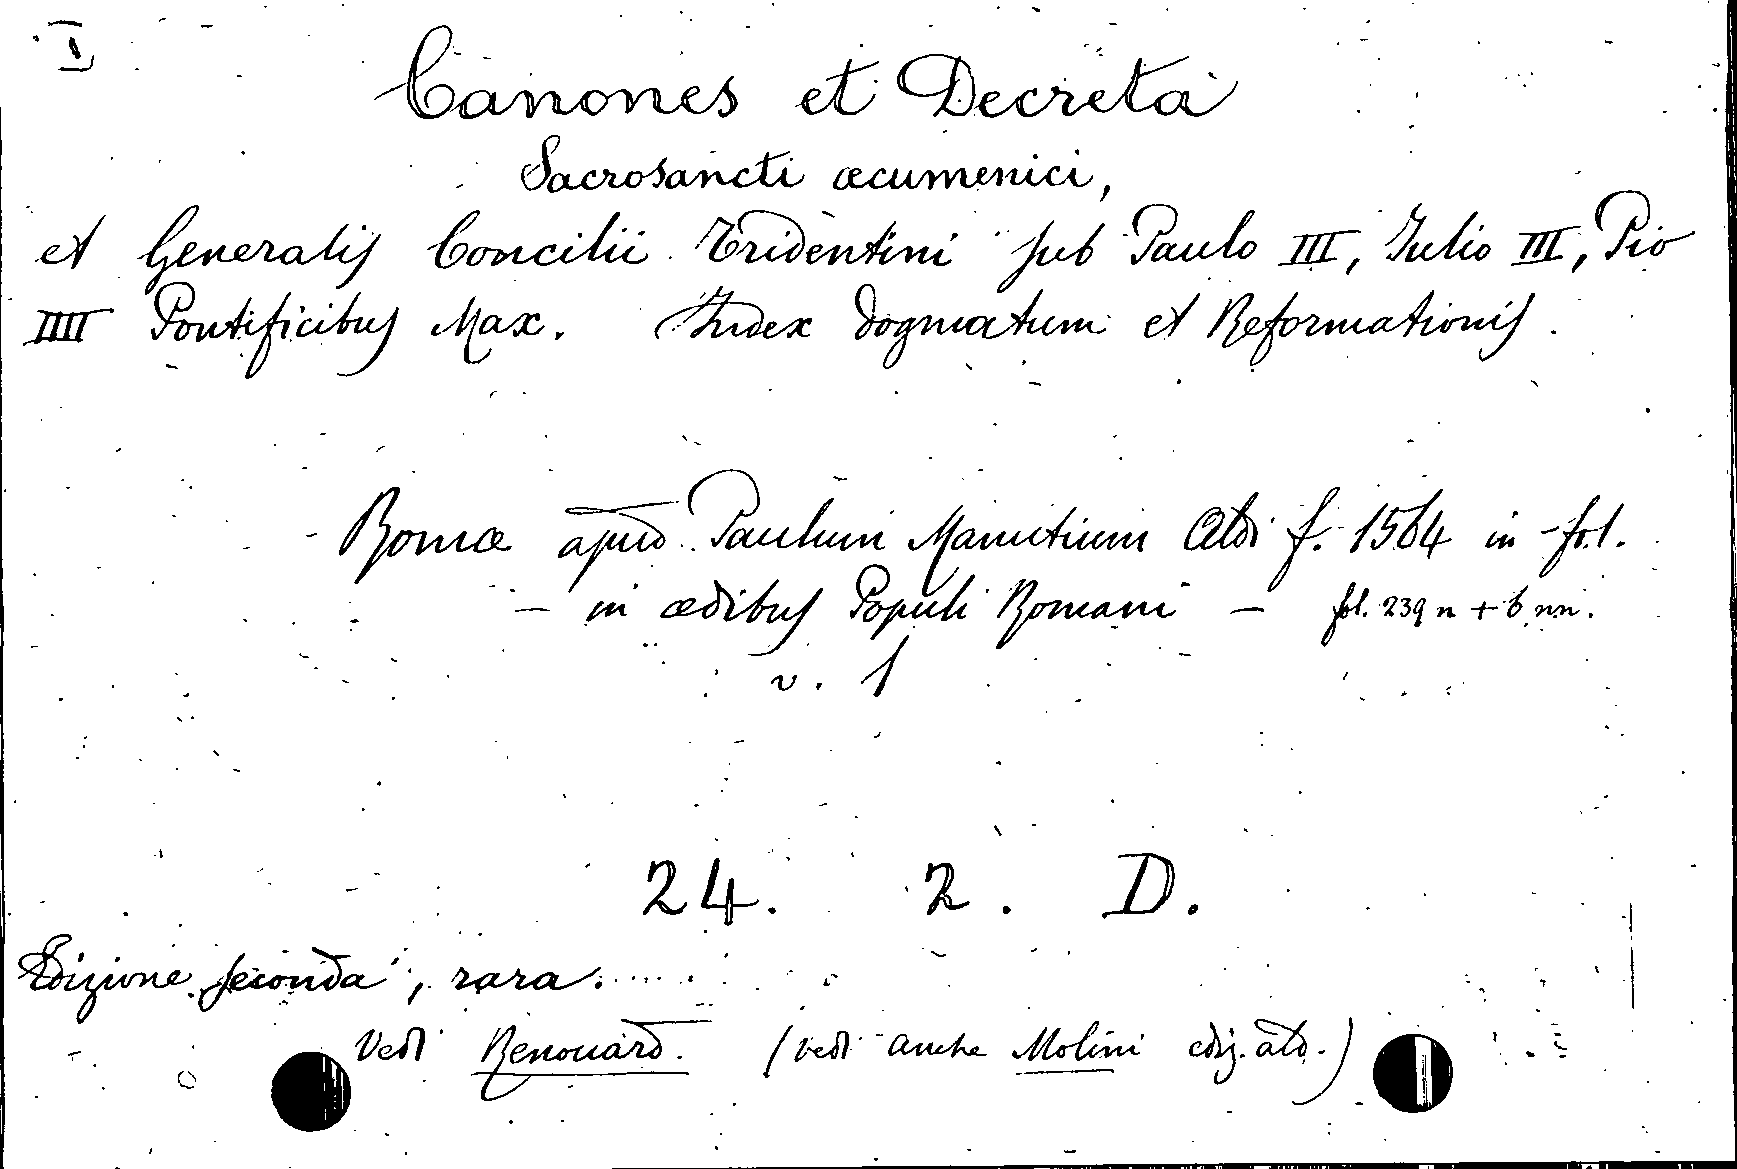 I
Canones et Decreta
Sacrosancti œcumenici,
et Generalis Concilii Tridentini sub Paulo III, Iulio III, Pio
IIII Pontificibus Max. Index dogmatum et Reformationis.
Romæ apud Paulum Manutium Aldi f. 1564 in-fol.
— in ædibus Populi Romani — fol. 239 n + 6 nn.
v. 1
24. 2. D.
Edizione seconda, rara.
Vedi Renouard. (vedi anche Molini ediz. ald.)